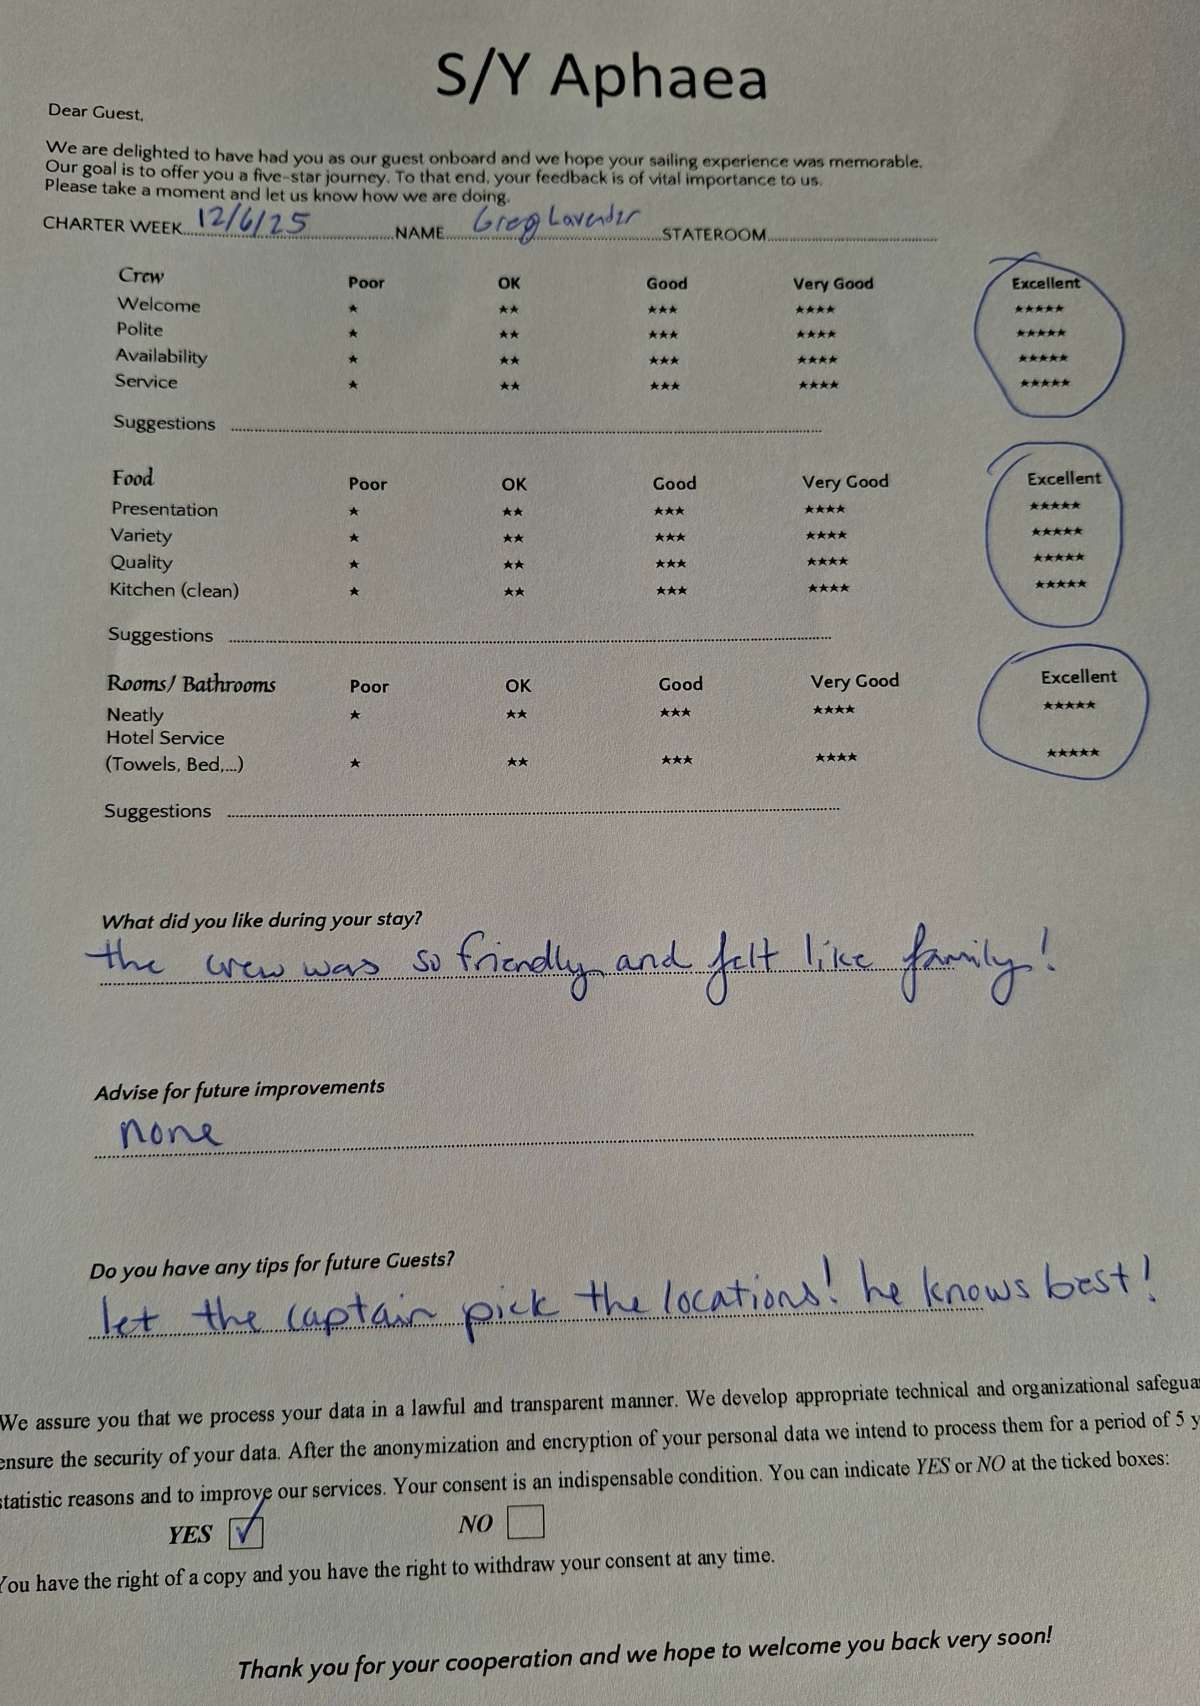 S/Y Aphaea
Dear Guest,
We are delighted to have had you as our guest onboard and we hope your sailing experience was memorable.
Our goal is to offer you a five-star journey. To that end, your feedback is of vital importance to us.
Please take a moment and let us know how we are doing.
CHARTER WEEK 12/6/25 NAME Greg Lavender STATEROOM
Crew Poor OK Good Very Good Excellent
Welcome ★ ★★ ★★★ ★★★★ ★★★★★
Polite ★ ★★ ★★★ ★★★★ ★★★★★
Availability ★ ★★ ★★★ ★★★★ ★★★★★
Service ★ ★★ ★★★ ★★★★ ★★★★★
Suggestions
Food Poor OK Good Very Good Excellent
Presentation ★ ★★ ★★★ ★★★★ ★★★★★
Variety ★ ★★ ★★★ ★★★★ ★★★★★
Quality ★ ★★ ★★★ ★★★★ ★★★★★
Kitchen (clean) ★ ★★ ★★★ ★★★★ ★★★★★
Suggestions
Rooms/ Bathrooms Poor OK Good Very Good Excellent
Neatly ★ ★★ ★★★ ★★★★ ★★★★★
Hotel Service
(Towels, Bed,...) ★ ★★ ★★★ ★★★★ ★★★★★
Suggestions
What did you like during your stay?
the crew was so friendly and felt like family!
Advise for future improvements
none
Do you have any tips for future Guests?
let the captain pick the locations! he knows best!
We assure you that we process your data in a lawful and transparent manner. We develop appropriate technical and organizational
ensure the security of your data. After the anonymization and encryption of your personal data we intend to process them for a period of 5
statistic reasons and to improve our services. Your consent is an indispensable condition. You can indicate YES or NO at the ticked boxes:
YES ✓ NO
You have the right of a copy and you have the right to withdraw your consent at any time.
Thank you for your cooperation and we hope to welcome you back very soon!